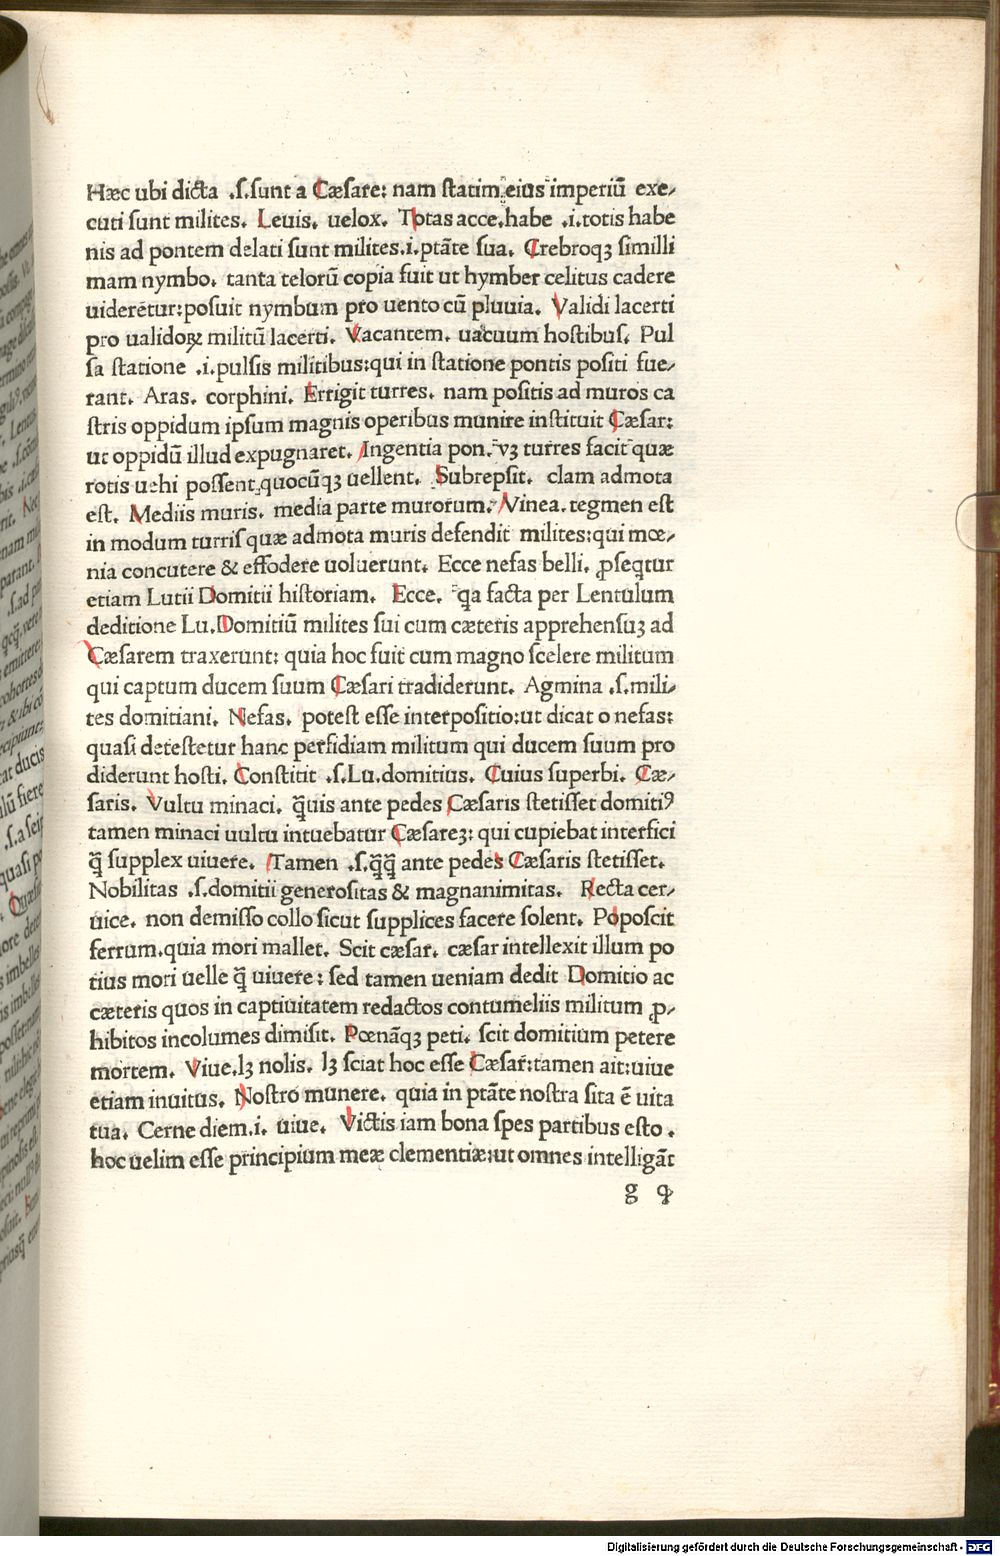 Hæc ubi dicta .ſ.ſunt a Cæſare: nam ſtatim eius imperiū exe⸗
cuti ſunt milites. Leuis. uelox. Totas acce.habe .i.totis habe
nis ad pontem delati ſunt milites.i.ptāte ſua. Crebroqꝫ ſimilli
mam nymbo. tanta telorū copia fuit ut hymber celitus cadere
uiderētur:poſuit nymbum pro uento cū pluuia. Validi lacerti
pro ualidoꝝ militū lacerti. Vacantem. uacuum hoſtibuſ. Pul
ſa ſtatione .i.pulſis militibus:qui in ſtatione pontis poſiti fue⸗
rant. Aras. corphini. Errigit turres. nam poſitis ad muros ca
ſtris oppidum ipſum magnis operibus munire inſtituit Cæſar:
ut oppidū illud expugnaret. Ingentia pon. vꝫ turres facit quæ
rotis uehi poſſent quocūqꝫ uellent. Subrepſit. clam admota
eſt. Mediis muris. media parte murorum. Vinea. tegmen eſt
in modum turriſ quæ admota muris defendit milites:qui mœ⸗
nia concutere & effodere uoluerunt. Ecce nefas belli. ꝓſeqtur
etiam Lutii Domitii hiſtoriam. Ecce. qa facta per Lentulum
deditione Lu.Domitiū milites ſui cum cæteris apprehenſuꝫ ad
Cæſarem traxerunt: quia hoc fuit cum magno ſcelere militum
qui captum ducem ſuum Cæſari tradiderunt. Agmina .ſ.mili⸗
tes domitiani. Nefas. poteſt eſſe interpoſitio:ut dicat o nefas:
quaſi deteſtetur hanc perfidiam militum qui ducem ſuum pro
diderunt hoſti. Conſtitit .ſ.Lu.domitius. Cuius ſuperbi. Cæ⸗
ſaris. Vultu minaci. q̄uis ante pedes Cæſaris ſtetiſſet domitiꝰ
tamen minaci uultu intuebatur Cæſareꝫ: qui cupiebat interfici
q̄ ſupplex uiuere. Tamen .ſ.q̄q̄ ante pedes Cæſaris ſtetiſſet.
Nobilitas .ſ.domitii generoſitas & magnanimitas. Recta cer⸗
uice. non demiſſo collo ſicut ſupplices facere ſolent. Popoſcit
ferrum.quia mori mallet. Scit cæſar. cæſar intellexit illum po
tius mori uelle q̄ uiuere: ſed tamen ueniam dedit Domitio ac
cæteris quos in captiuitatem redactos contumeliis militum ꝓ⸗
hibitos incolumes dimiſit. Pœnāqꝫ peti. ſcit domitium petere
mortem. Viue.lꝫ nolis. lꝫ ſciat hoc eſſe Cæſar:tamen ait:uiue
etiam inuitus. Noſtro munere. quia in ptāte noſtra ſita ē uita
tua. Cerne diem.i. uiue. Victis iam bona ſpes partibus eſto .
hoc uelim eſſe principium meæ clementiæ:ut omnes intelligāt
g
Digitalisierung gefördert durch die Deutsche Forschungsgemeinschaft - DFG